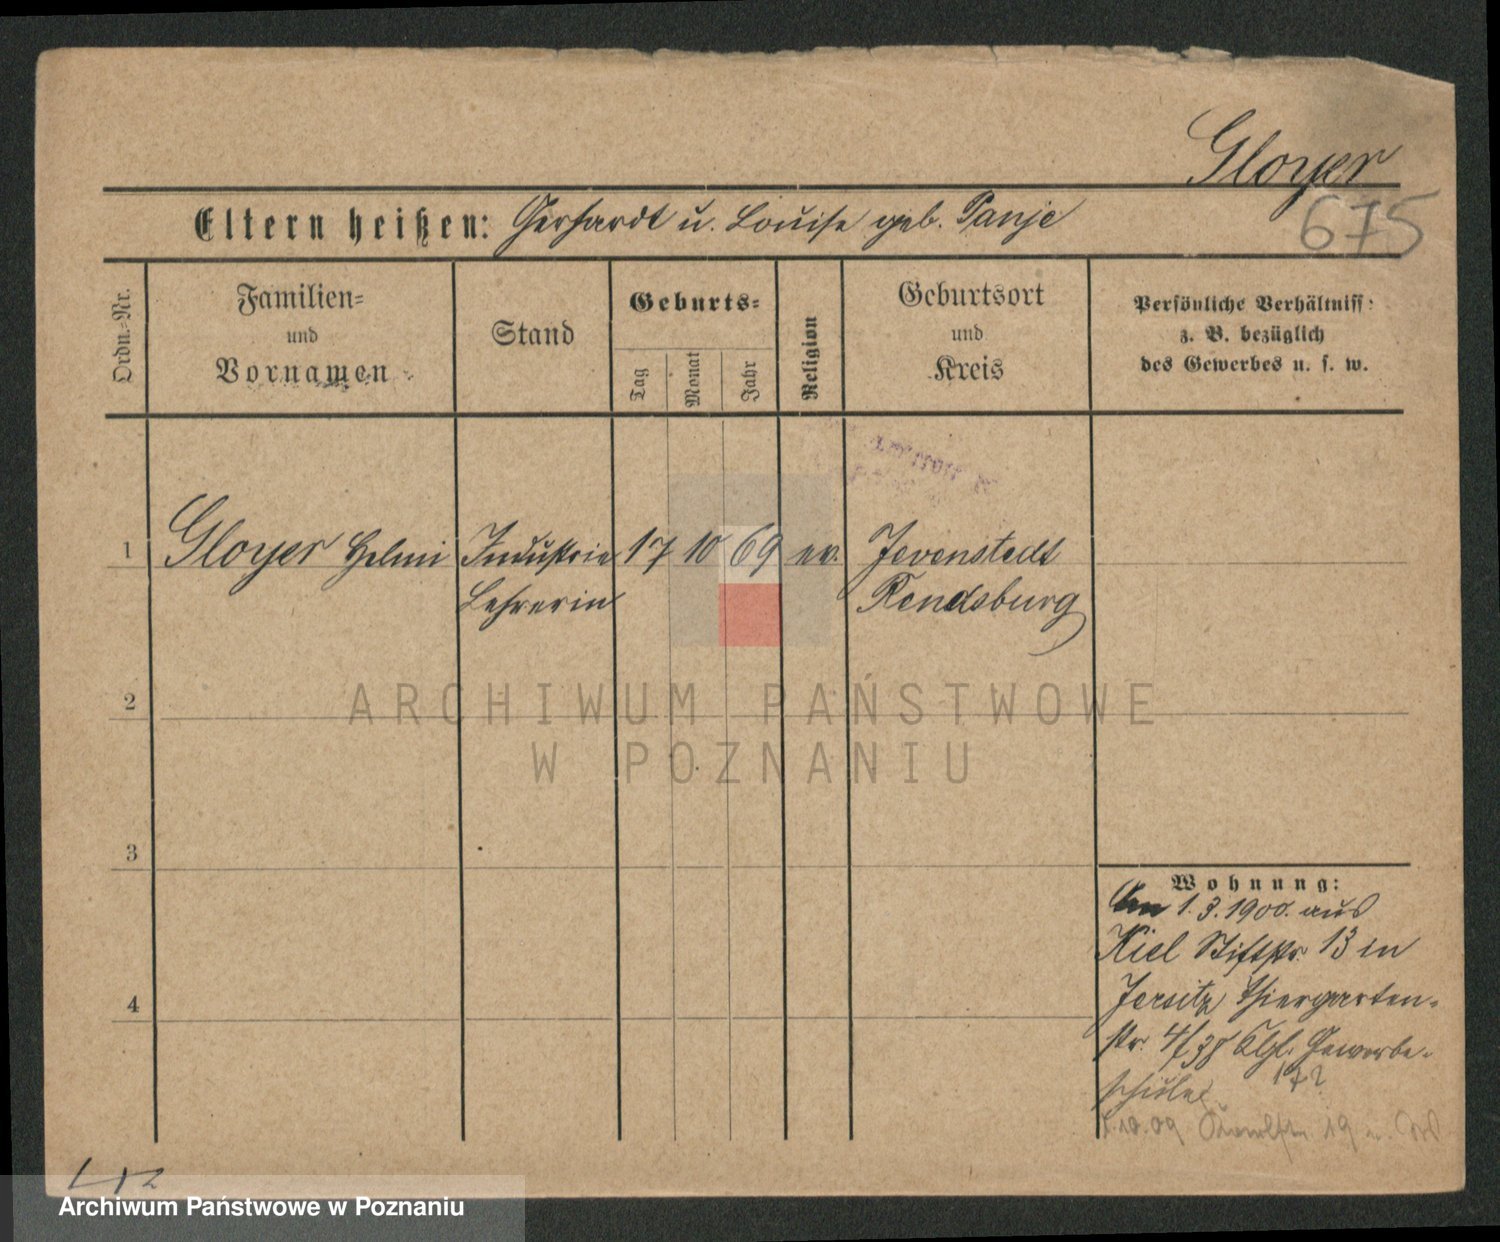 Gloyer
675
Eltern heißen: Gerhardt u. Louise geb. Panje
Ordn.-Nr.
Familien-
und
Vornamen
Stand
Geburts-
Tag
Monat
Jahr
Religion
Geburtsort
und
Kreis
Persönliche Verhältniss:
z. B. bezüglich
des Gewerbes u. s. w.
1 Gloyer Helmi Industrie 17 10 69 ev. Jevenstedt
Lehrerin Rendsburg
ARCHIWUM PAŃSTWOWE
W POZNANIU
2
3
4
Wohnung:
1.3.1900. aus
Kiel Stiftstr. 13 in
Jersitz Thiergarten-
str. 4/38 Kgl. Gewerbe-
schule
1.10.09 19
Archiwum Państwowe w Poznaniu